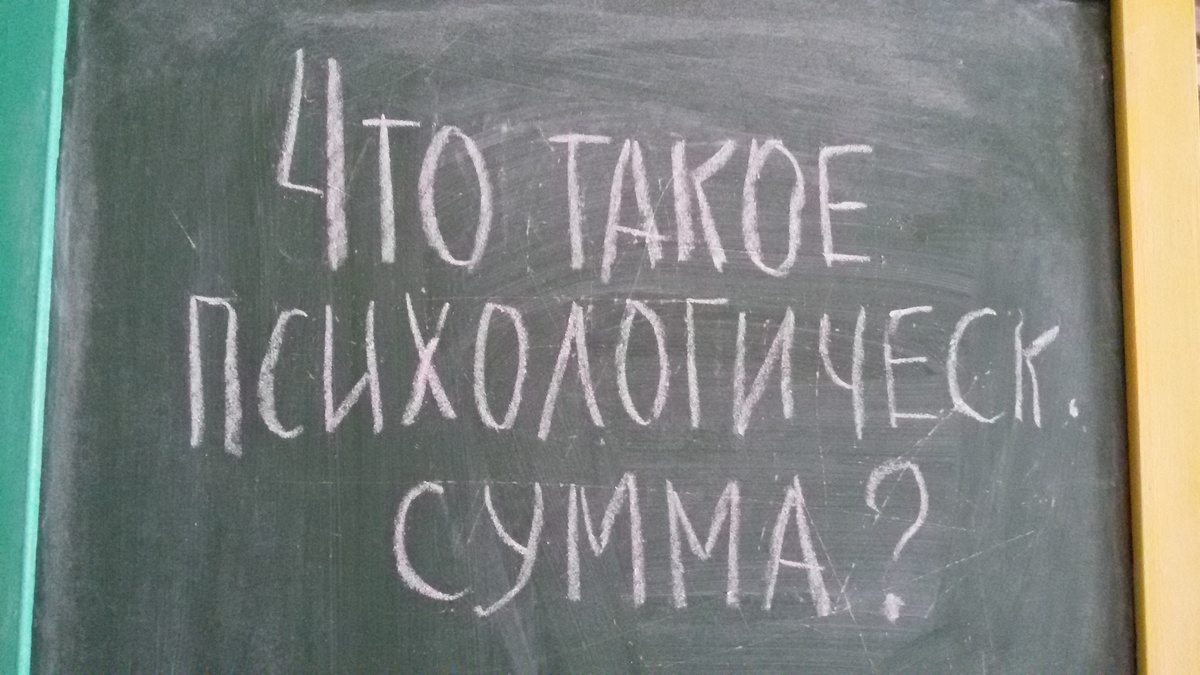 Что такое
психологическ.
сумма?